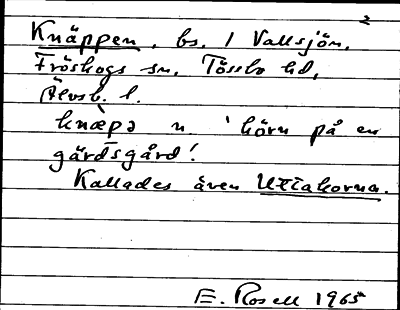 2
Knäppen, bs. i Vallsjön,
Fröskogs sn. Tössbo hd,
Älvsb. l.
knæ̀pə n 'hörn på en
gärdsgård'.
Kallades även Uttahorna.
E. Rosell 1965